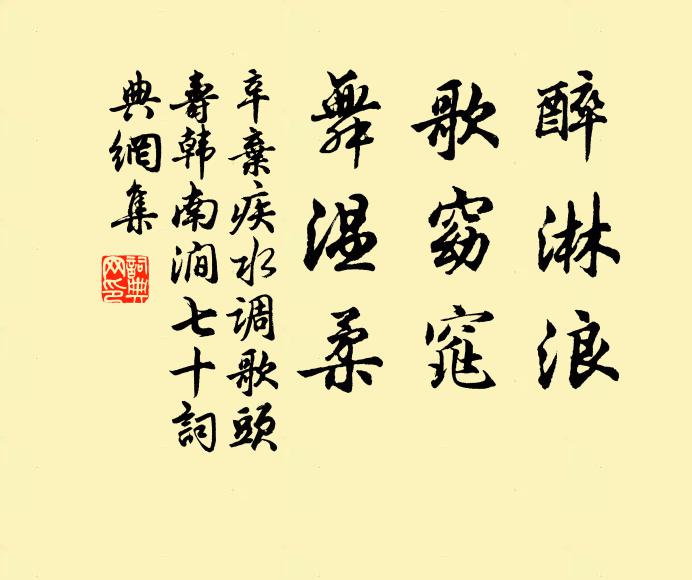 醉淋浪
歌窈窕
舞温柔
辛棄疾水调歌頭
壽韩南澗七十詞
典網集
詞典
网印